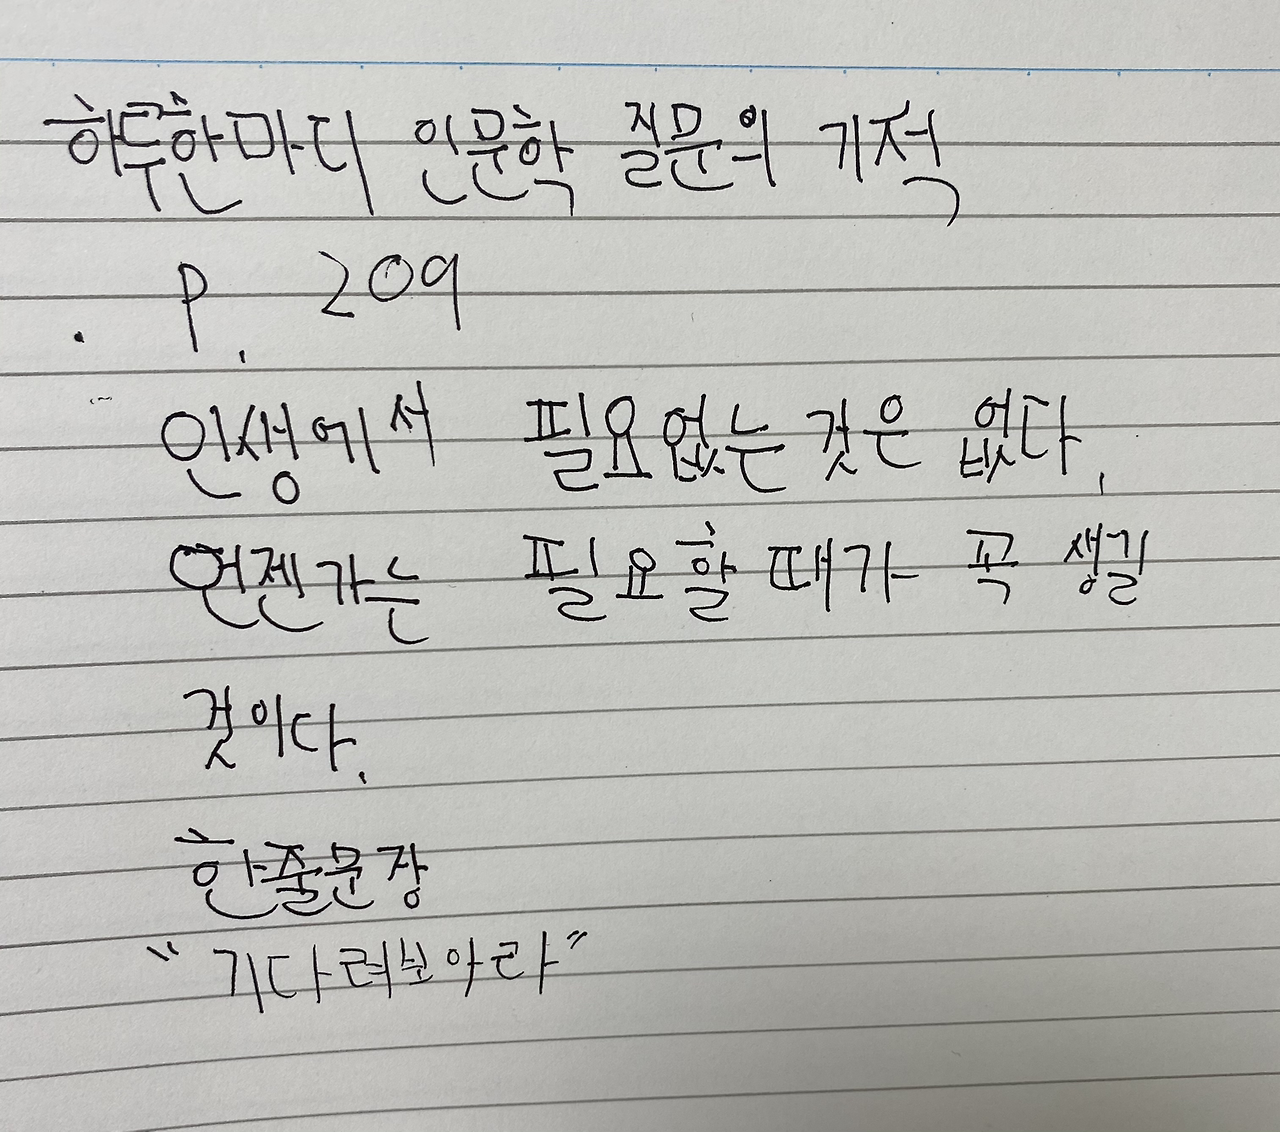 하루한마디 인문학 질문의 기적
P. 209
인생에서 필요없는 것은 없다.
언젠가는 필요할 때가 꼭 생길
것이다.
한줄문장
"기다려보아라"